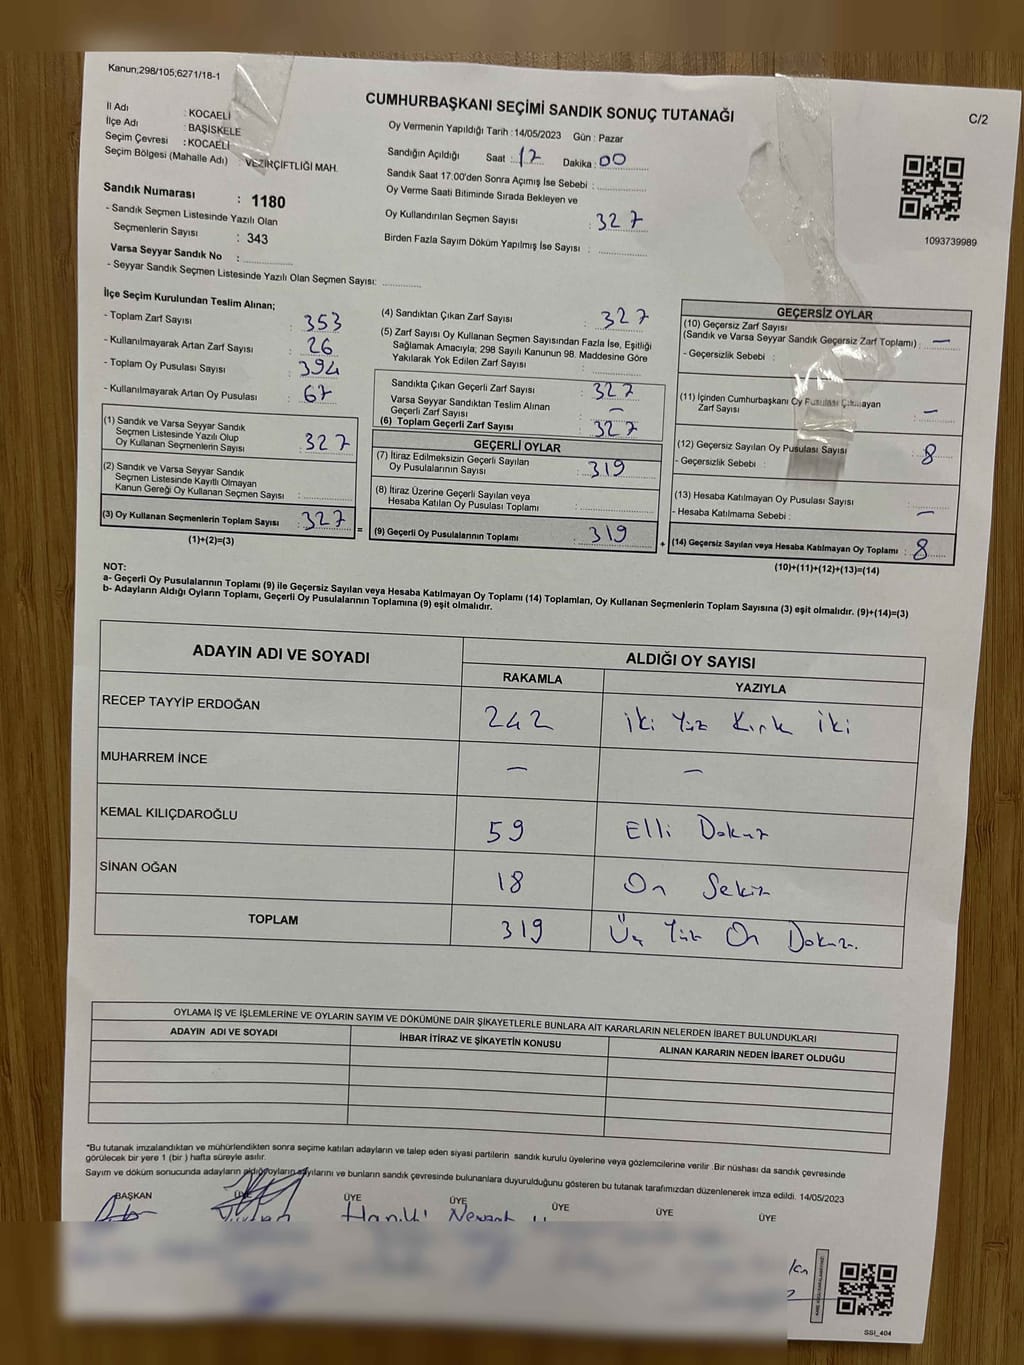 Kanun;298/105;6271/18-1
CUMHURBAŞKANI SEÇİMİ SANDIK SONUÇ TUTANAĞI
C/2
İl Adı : KOCAELİ
İlçe Adı : BAŞİSKELE
Seçim Çevresi : KOCAELİ
Seçim Bölgesi (Mahalle Adı) : VEZİRÇİFTLİĞİ MAH.
Sandık Numarası : 1180
- Sandık Seçmen Listesinde Yazılı Olan
Seçmenlerin Sayısı : 343
Varsa Seyyar Sandık No :
- Seyyar Sandık Seçmen Listesinde Yazılı Olan Seçmen Sayısı:
Oy Vermenin Yapıldığı Tarih :14/05/2023 Gün : Pazar
Sandığın Açıldığı Saat : 17 Dakika : 00
Sandık Saat 17:00'den Sonra Açımış İse Sebebi :
Oy Verme Saati Bitiminde Sırada Bekleyen ve
Oy Kullandırılan Seçmen Sayısı : 327
Birden Fazla Sayım Döküm Yapılmış İse Sayısı :
1093739989
İlçe Seçim Kurulundan Teslim Alınan;
- Toplam Zarf Sayısı : 353
- Kullanılmayarak Artan Zarf Sayısı : 26
- Toplam Oy Pusulası Sayısı : 394
- Kullanılmayarak Artan Oy Pusulası : 67
(1) Sandık ve Varsa Seyyar Sandık
Seçmen Listesinde Yazılı Olup
Oy Kullanan Seçmenlerin Sayısı : 327
(2) Sandık ve Varsa Seyyar Sandık
Seçmen Listesinde Kayıtlı Olmayan
Kanun Gereği Oy Kullanan Seçmen Sayısı :
(3) Oy Kullanan Seçmenlerin Toplam Sayısı : 327 =
(1)+(2)=(3)
(4) Sandıktan Çıkan Zarf Sayısı : 327
(5) Zarf Sayısı Oy Kullanan Seçmen Sayısından Fazla İse, Eşitliği
Sağlamak Amacıyla; 298 Sayılı Kanunun 98. Maddesine Göre
Yakılarak Yok Edilen Zarf Sayısı :
Sandıkta Çıkan Geçerli Zarf Sayısı : 327
Varsa Seyyar Sandıktan Teslim Alınan
Geçerli Zarf Sayısı : —
(6) Toplam Geçerli Zarf Sayısı : 327
GEÇERLİ OYLAR
(7) İtiraz Edilmeksizin Geçerli Sayılan
Oy Pusulalarının Sayısı : 319
(8) İtiraz Üzerine Geçerli Sayılan veya
Hesaba Katılan Oy Pusulası Toplamı :
(9) Geçerli Oy Pusulalarının Toplamı : 319 +
GEÇERSİZ OYLAR
(10) Geçersiz Zarf Sayısı
(Sandık ve Varsa Seyyar Sandık Geçersiz Zarf Toplamı) : —
- Geçersizlik Sebebi :
(11) İçinden Cumhurbaşkanı Oy Pusulası Çıkmayan
Zarf Sayısı : —
(12) Geçersiz Sayılan Oy Pusulası Sayısı : 8
- Geçersizlik Sebebi :
(13) Hesaba Katılmayan Oy Pusulası Sayısı
- Hesaba Katılmama Sebebi : —
(14) Geçersiz Sayılan veya Hesaba Katılmayan Oy Toplamı : 8
(10)+(11)+(12)+(13)=(14)
NOT:
a- Geçerli Oy Pusulalarının Toplamı (9) ile Geçersiz Sayılan veya Hesaba Katılmayan Oy Toplamı (14) Toplamları, Oy Kullanan Seçmenlerin Toplam Sayısına (3) eşit olmalıdır. (9)+(14)=(3)
b- Adayların Aldığı Oyların Toplamı, Geçerli Oy Pusulalarının Toplamına (9) eşit olmalıdır.
ADAYIN ADI VE SOYADI ALDIĞI OY SAYISI
RAKAMLA YAZIYLA
RECEP TAYYİP ERDOĞAN 242 İki Yüz Kırk İki
MUHARREM İNCE — —
KEMAL KILIÇDAROĞLU 59 Elli Dokuz
SİNAN OĞAN 18 On Sekiz
TOPLAM 319 Üç Yüz On Dokuz.
OYLAMA İŞ VE İŞLEMLERİNE VE OYLARIN SAYIM VE DÖKÜMÜNE DAİR ŞİKAYETLERLE BUNLARA AİT KARARLARIN NELERDEN İBARET BULUNDUKLARI
ADAYIN ADI VE SOYADI İHBAR İTİRAZ VE ŞİKAYETİN KONUSU ALINAN KARARIN NEDEN İBARET OLDUĞU
*Bu tutanak imzalandıktan ve mühürlendikten sonra seçime katılan adayların ve talep eden siyasi partilerin sandık kurulu üyelerine veya gözlemcilerine verilir .Bir nüshası da sandık çevresinde
görülecek bir yere 1 (bir ) hafta süreyle asılır.
Sayım ve döküm sonucunda adayların aldığı oyların sayılarını ve bunların sandık çevresinde bulunanlara duyurulduğunu gösteren bu tutanak tarafımızdan düzenlenerek imza edildi. 14/05/2023
BAŞKAN ÜYE ÜYE ÜYE ÜYE ÜYE ÜYE
SSI_404